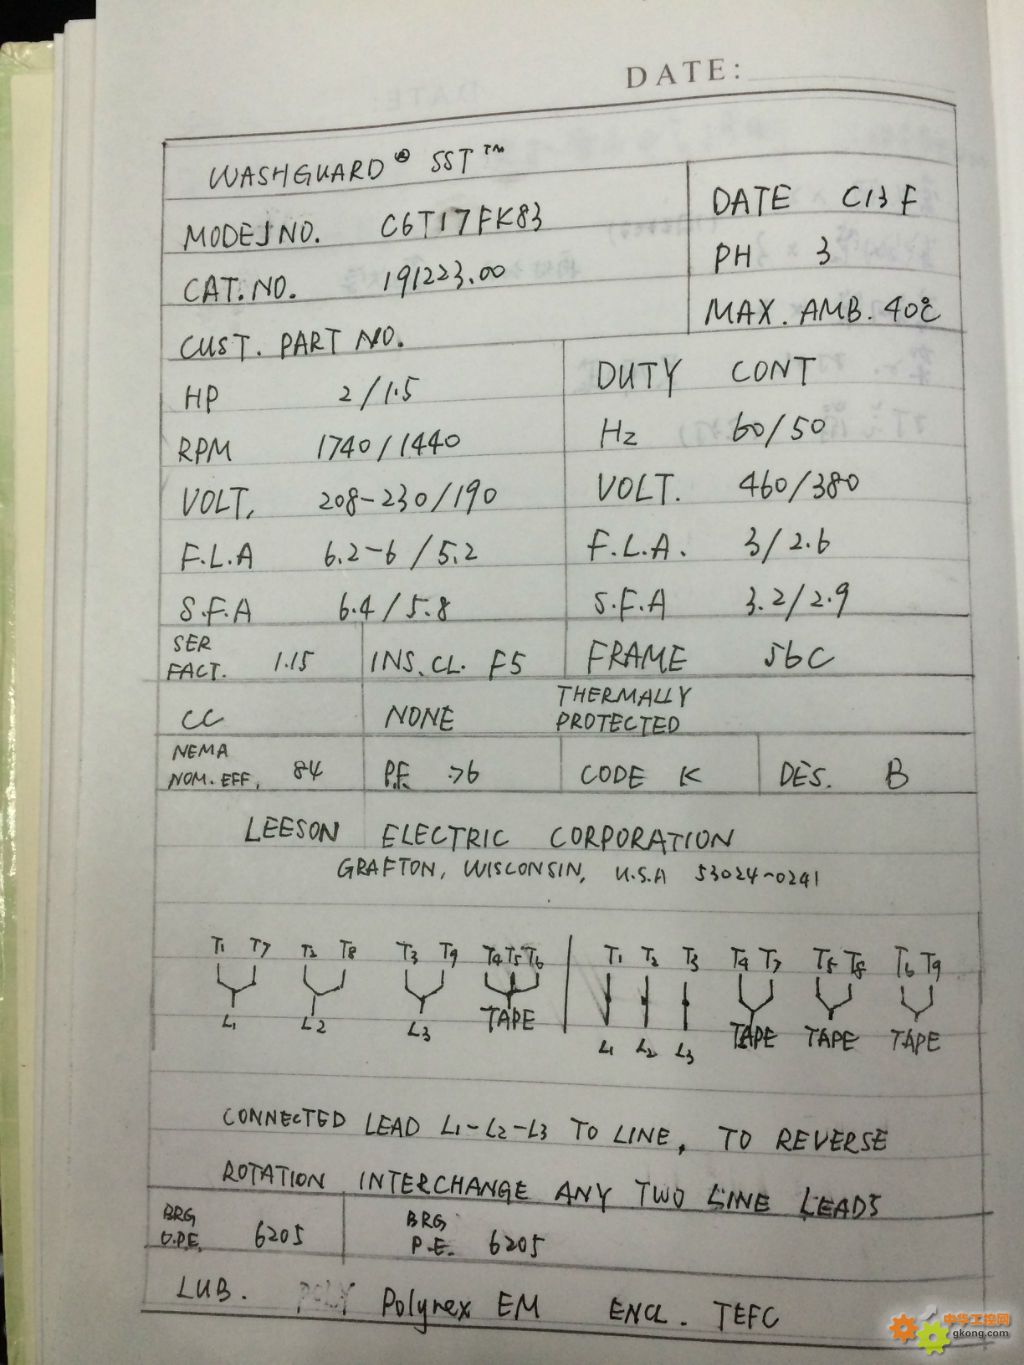 DATE:
WASHGUARD® SST™
MODEL NO. C6T17FK83
DATE C13F
CAT. NO. 191223.00
PH 3
CUST. PART NO.
MAX. AMB. 40℃
HP 2/1.5
DUTY CONT
RPM 1740/1440
Hz 60/50
VOLT. 208-230/190
VOLT. 460/380
F.L.A 6.2-6/5.2
F.L.A. 3/2.6
S.F.A 6.4/5.8
S.F.A 3.2/2.9
SER FACT. 1.15
INS. CL. F5
FRAME 56C
CC
NONE THERMALLY PROTECTED
NEMA NOM. EFF. 84
P.F. 76
CODE K
DES. B
LEESON ELECTRIC CORPORATION
GRAFTON, WISCONSIN, U.S.A 53024-0241
T1 T7 T2 T8 T3 T9 T4 T5 T6
L1 L2 L3 TAPE
T1 T2 T3 T4 T7 T5 T8 T6 T9
L1 L2 L3 TAPE TAPE TAPE
CONNECTED LEAD L1-L2-L3 TO LINE, TO REVERSE
ROTATION INTERCHANGE ANY TWO LINE LEADS
BRG O.P.E. 6205
BRG P.E. 6205
LUB. POLY Polyrex EM ENCL. TEFC
中华工控网
gkong.com